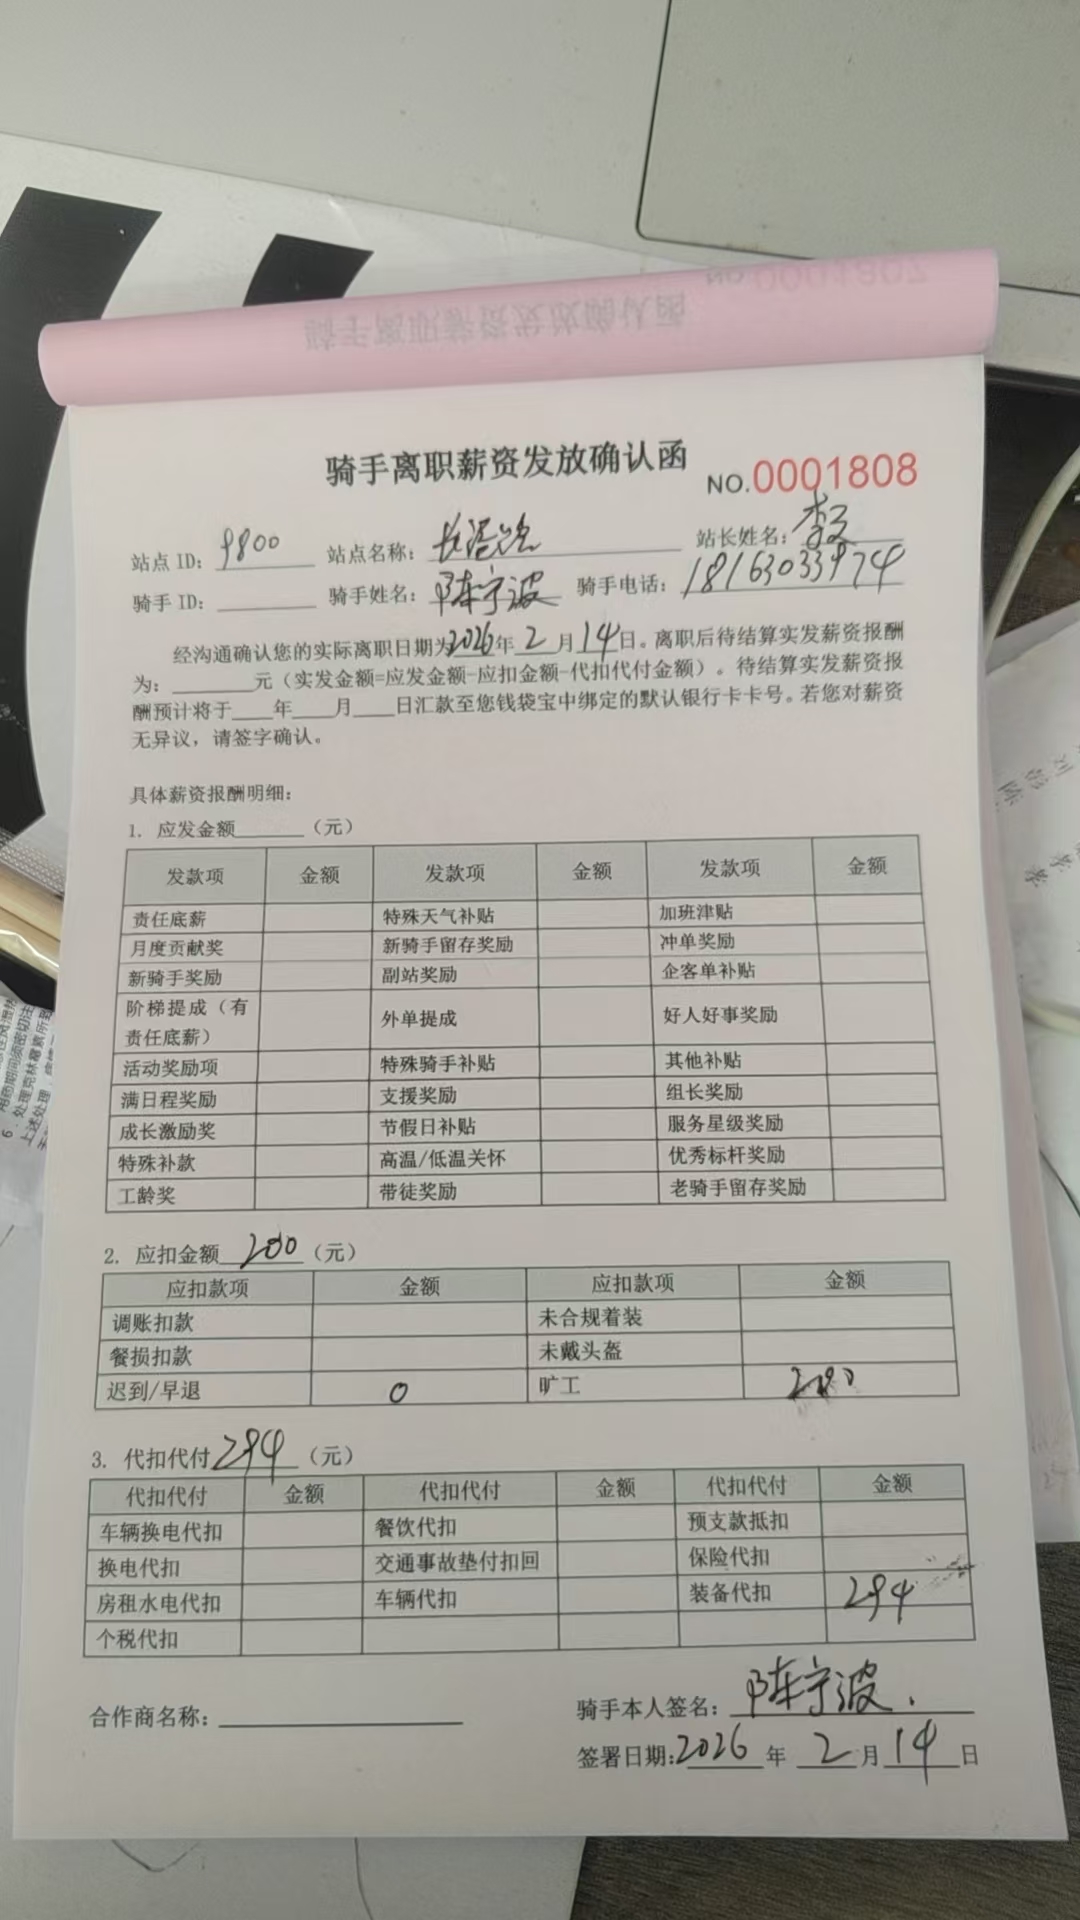 骑手离职薪资发放确认函 NO.0001808
站点 ID: 9800 站点名称: 站长姓名:
骑手 ID: 骑手姓名: 陈宁波 骑手电话: 18163033974
经沟通确认您的实际离职日期为2026年2月14日。离职后待结算实发薪资报酬
为: 元（实发金额=应发金额-应扣金额-代扣代付金额）。待结算实发薪资报
酬预计将于 年 月 日汇款至您钱袋宝中绑定的默认银行卡卡号。若您对薪资
无异议，请签字确认。
具体薪资报酬明细:
1. 应发金额 （元）
发款项 金额 发款项 金额 发款项 金额
责任底薪 特殊天气补贴 加班津贴
月度贡献奖 新骑手留存奖励 冲单奖励
新骑手奖励 副站奖励 企客单补贴
阶梯提成（有
责任底薪） 外单提成 好人好事奖励
活动奖励项 特殊骑手补贴 其他补贴
满日程奖励 支援奖励 组长奖励
成长激励奖 节假日补贴 服务星级奖励
特殊补款 高温/低温关怀 优秀标杆奖励
工龄奖 带徒奖励 老骑手留存奖励
2. 应扣金额 200 （元）
应扣款项 金额 应扣款项 金额
调账扣款 未合规着装
餐损扣款 未戴头盔
迟到/早退 0 旷工
3. 代扣代付 294 （元）
代扣代付 金额 代扣代付 金额 代扣代付 金额
车辆换电代扣 餐饮代扣 预支款抵扣
换电代扣 交通事故垫付扣回 保险代扣
房租水电代扣 车辆代扣 装备代扣 294
个税代扣
合作商名称: 骑手本人签名: 陈宁波
签署日期:2026 年 2 月 14 日